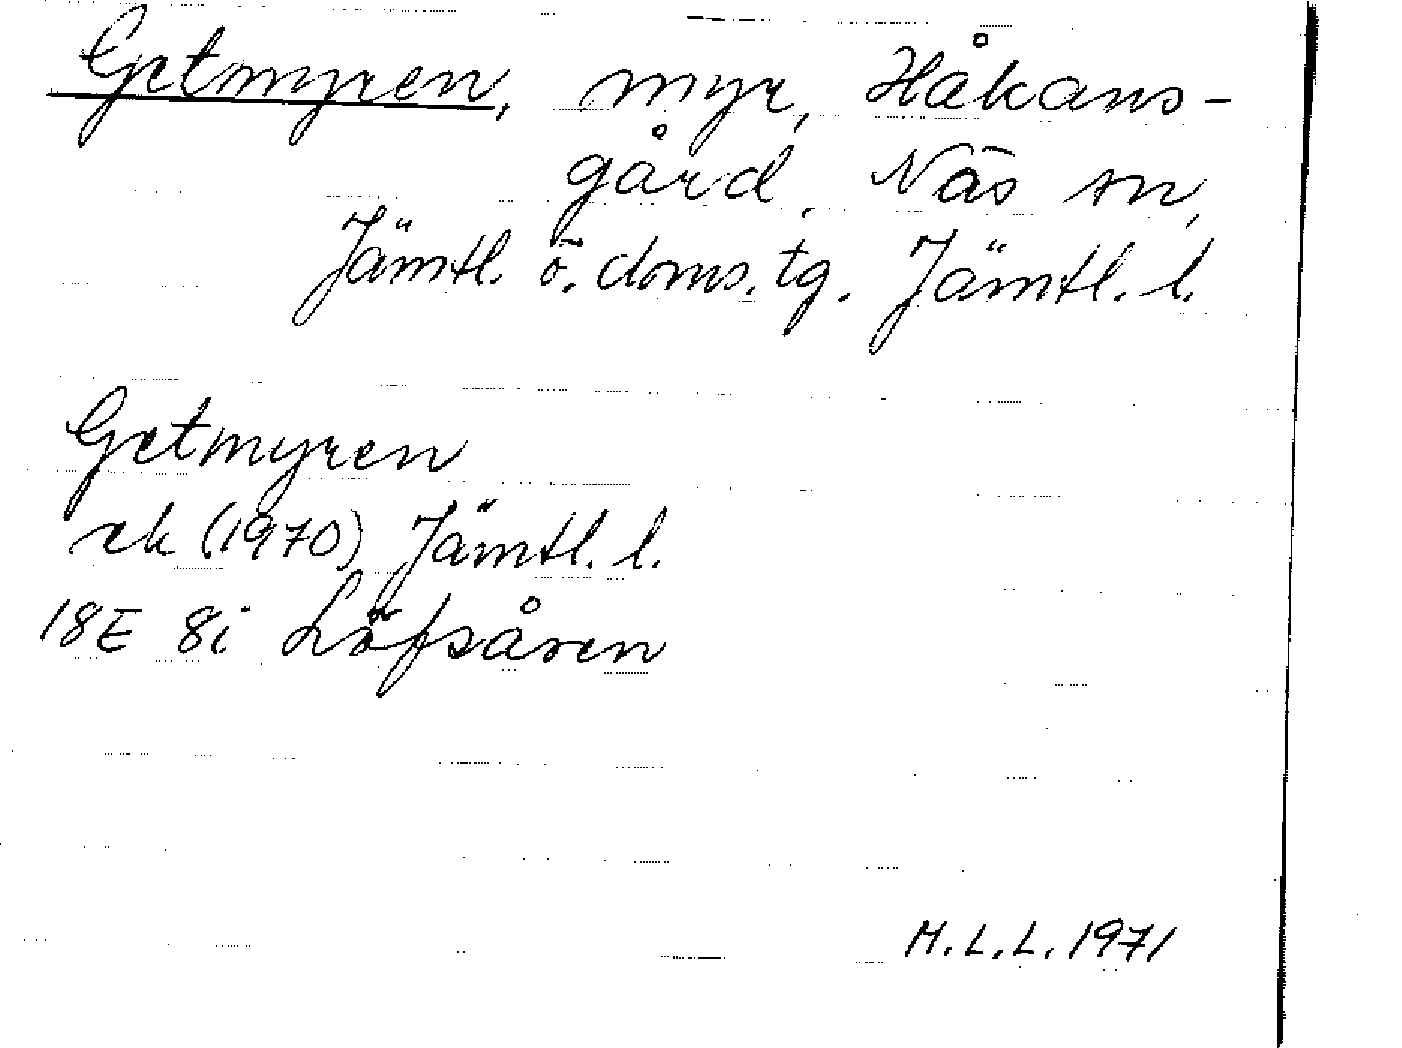 Getmyren, myr, Håkans-
gård. Näs sn,
Jämtl. ö. doms. tg. Jämtl. l.
Getmyren
ek (1970) Jämtl. l.
18E 8i Löfsåren
H. L. L. 1971